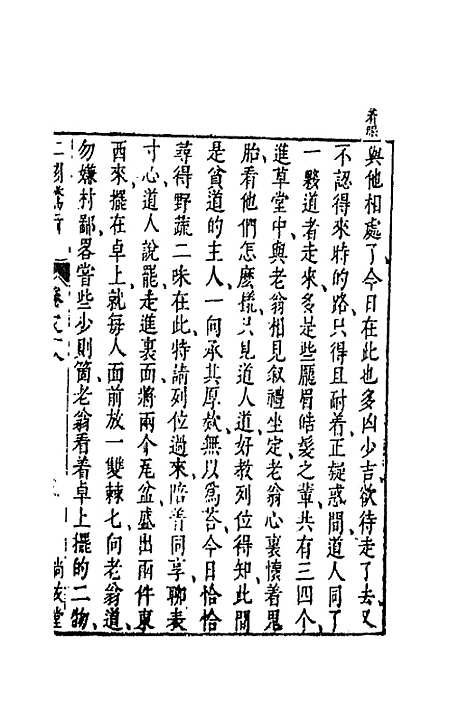 着眼
與他相處了今日在此也多凶少吉欲待走了去又
不認得來時的路只得且耐着正疑惑間道人同了
一夥道者走來多是些龐眉皓髮之輩共有三四個
進草堂中與老翁相見叙禮坐定老翁心裏懷着鬼
胎看他們怎麽樣只見道人道好教列位得知此間
是貧道的主人一向承其厚欵無以爲荅今日恰恰
尋得野蔬二味在此特請列位過來陪着同享聊表
寸心道人說罷走進裏面將兩个瓦盆盛出兩件東
西來擺在卓上就每人面前放一雙棘七向老翁道
勿嫌村鄙畧嘗些少則箇老翁看着卓上擺的二物
二刻驚奇
卷之十八
尚友堂